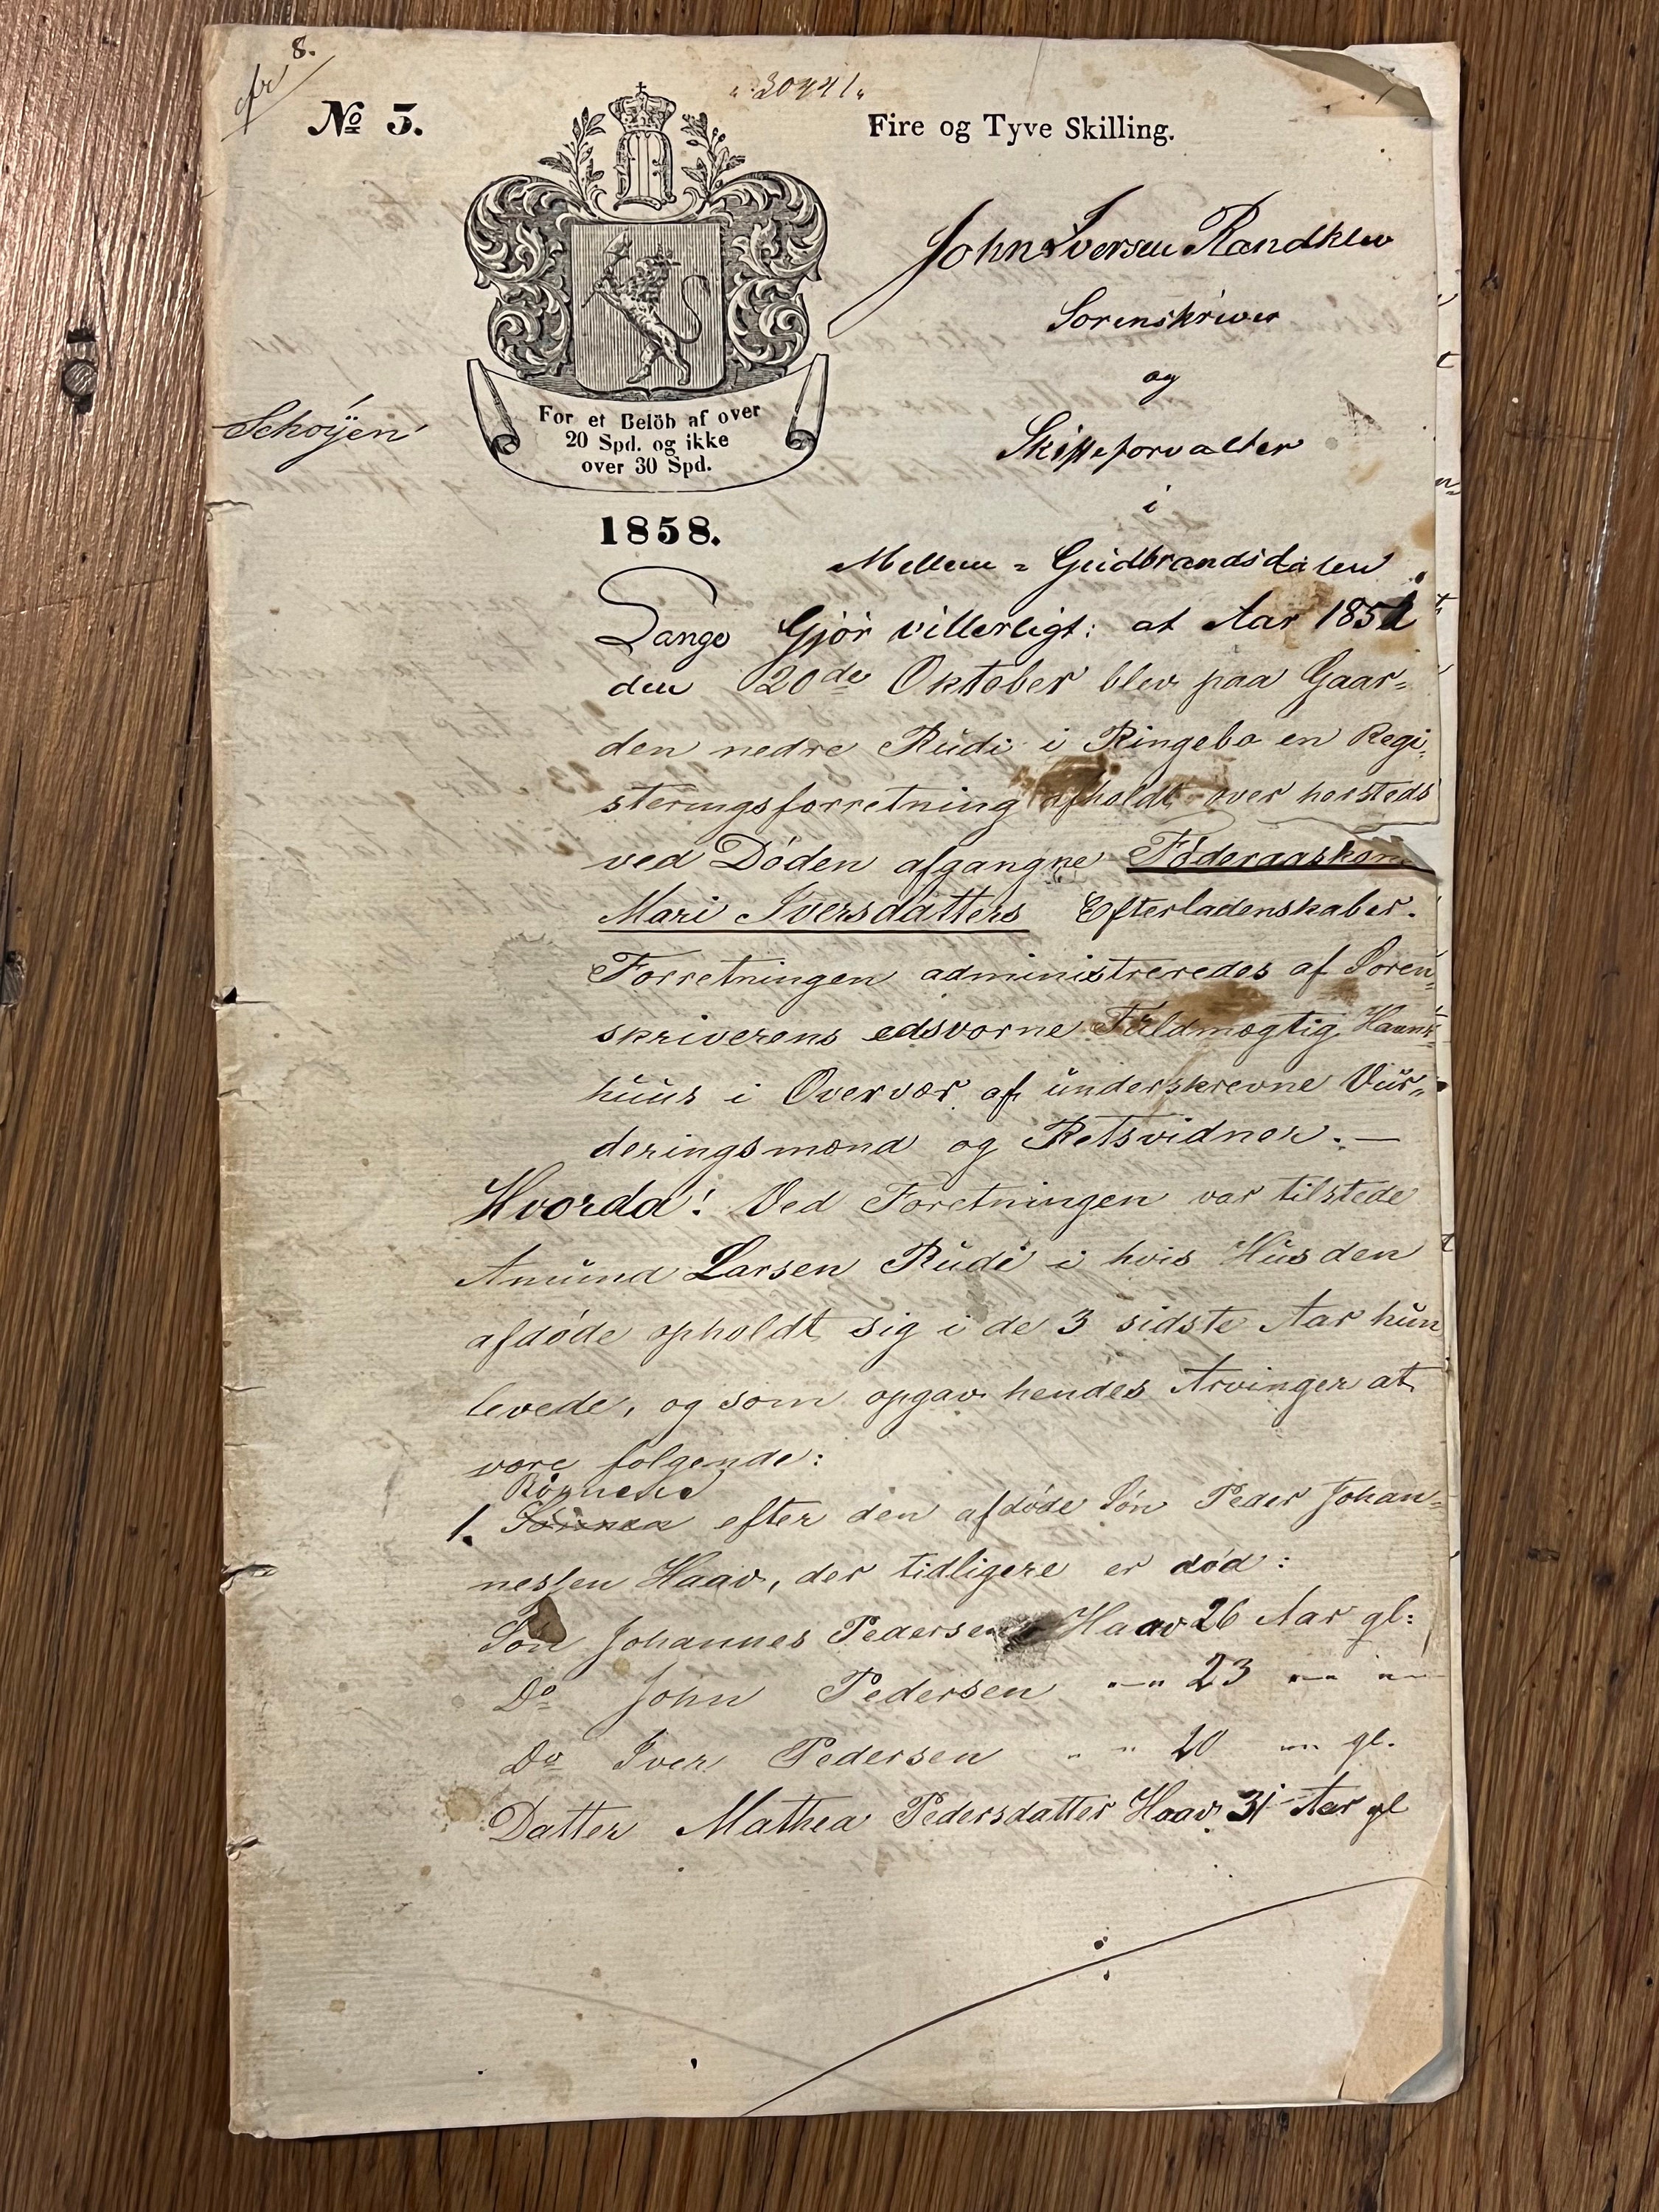 8.
cfr
"30441"
No 3.
Fire og Tyve Skilling.
John Iversen Randklev
Sorenskriver
og
Schøÿen
For et Belöb af over
20 Spd. og ikke
over 30 Spd.
Skifteforvalter
i
1858.
Mellem = Gudbrandsdalen
Lange Gjør vitterligt: at Aar 1858
den 20de Oktober blev paa Gaar=
den nedre Rudi i Ringebo en Regi=
steringsforretning afholdt over hersteds
ved Døden afgangne Føderaadskone
Mari Iversdatters Efterladenskaber.
Forretningen administreredes af Soren=
skriverens edsvorne Fuldmægtig Haank=
huus i Overvær af underskrevne Vur=
deringsmænd og Retsvidner. —
Hvorda! Ved Forretningen var tilstede
Amund Larsen Rudi i hvis Hus den
afdøde opholdt sig i de 3 sidste Aar hun
levede, og som opgav hendes Arvinger at
være følgende:
Børnene
1. efter den afdøde Søn Peder Johan=
nessen Haav, der tidligere er død:
Søn Johannes Pedersen Haav 26 Aar gl:
Do John Pedersen "—" 23 "—" "—"
Do Iver Pedersen " " 20 "—" gl.
Datter Mathea Pedersdatter Haav 31 Aar gl